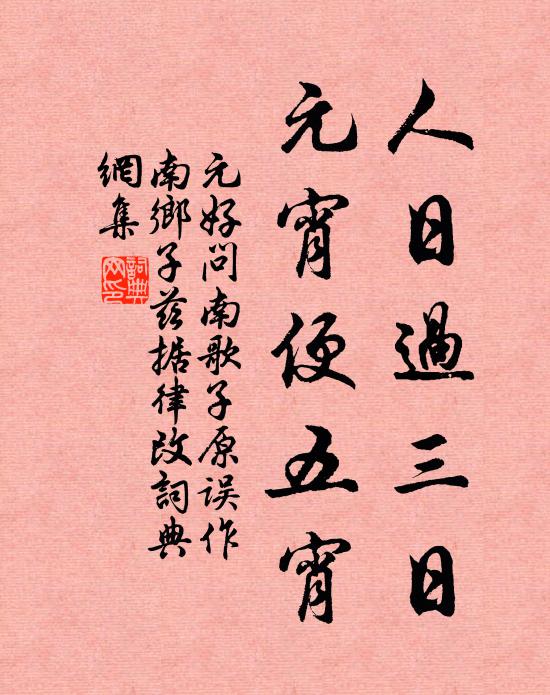 人日過三日
元宵便五宵
元好问南歌子原误作
南鄉子兹据律改詞典
網集
詞典網印